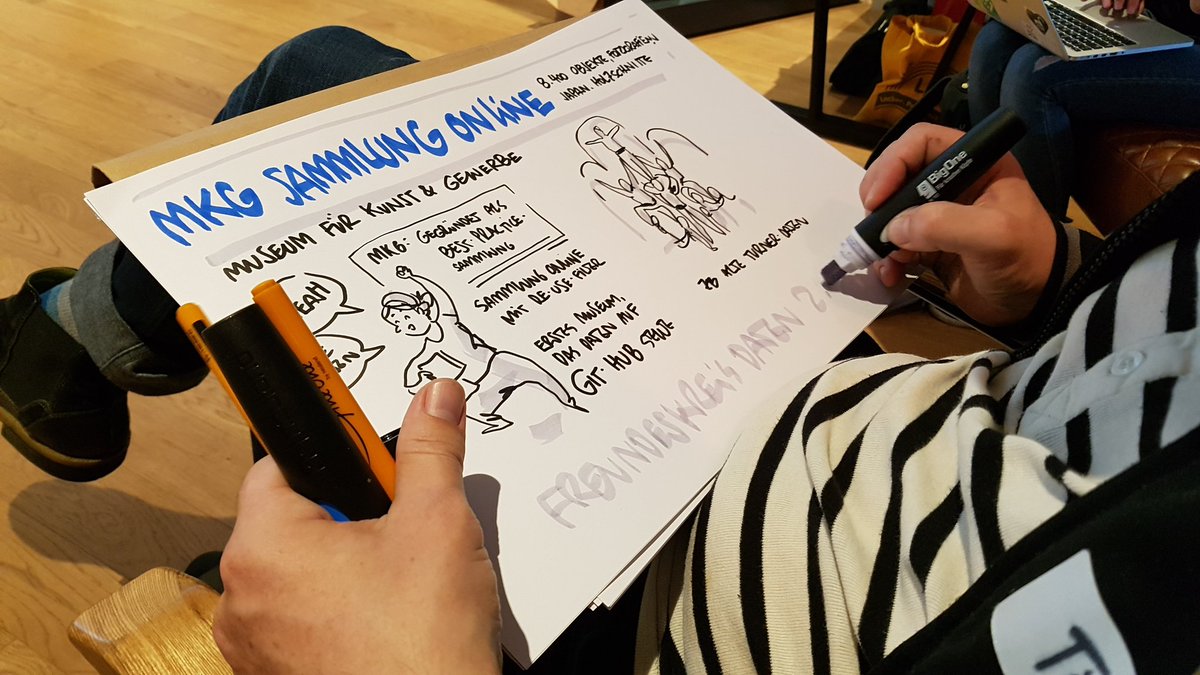 MKG SAMMLUNG ONLINE
8.400 OBJEKTE, FOTOGRAFIEN,
JAPAN. HOLZSCHNITTE
MUSEUM FÜR KUNST & GEWERBE
MKG: GEGRÜNDET ALS
BEST-PRACTICE-
SAMMLUNG
SAMMLUNG ONLINE
MIT RE-USE-FILTER
ERSTES MUSEUM,
DAS DATEN AUF
GIT HUB STELLTE
ZB ALTE TURNER-DATEN
FREUNDESKREIS DATEN 2.
BigOne
fine One